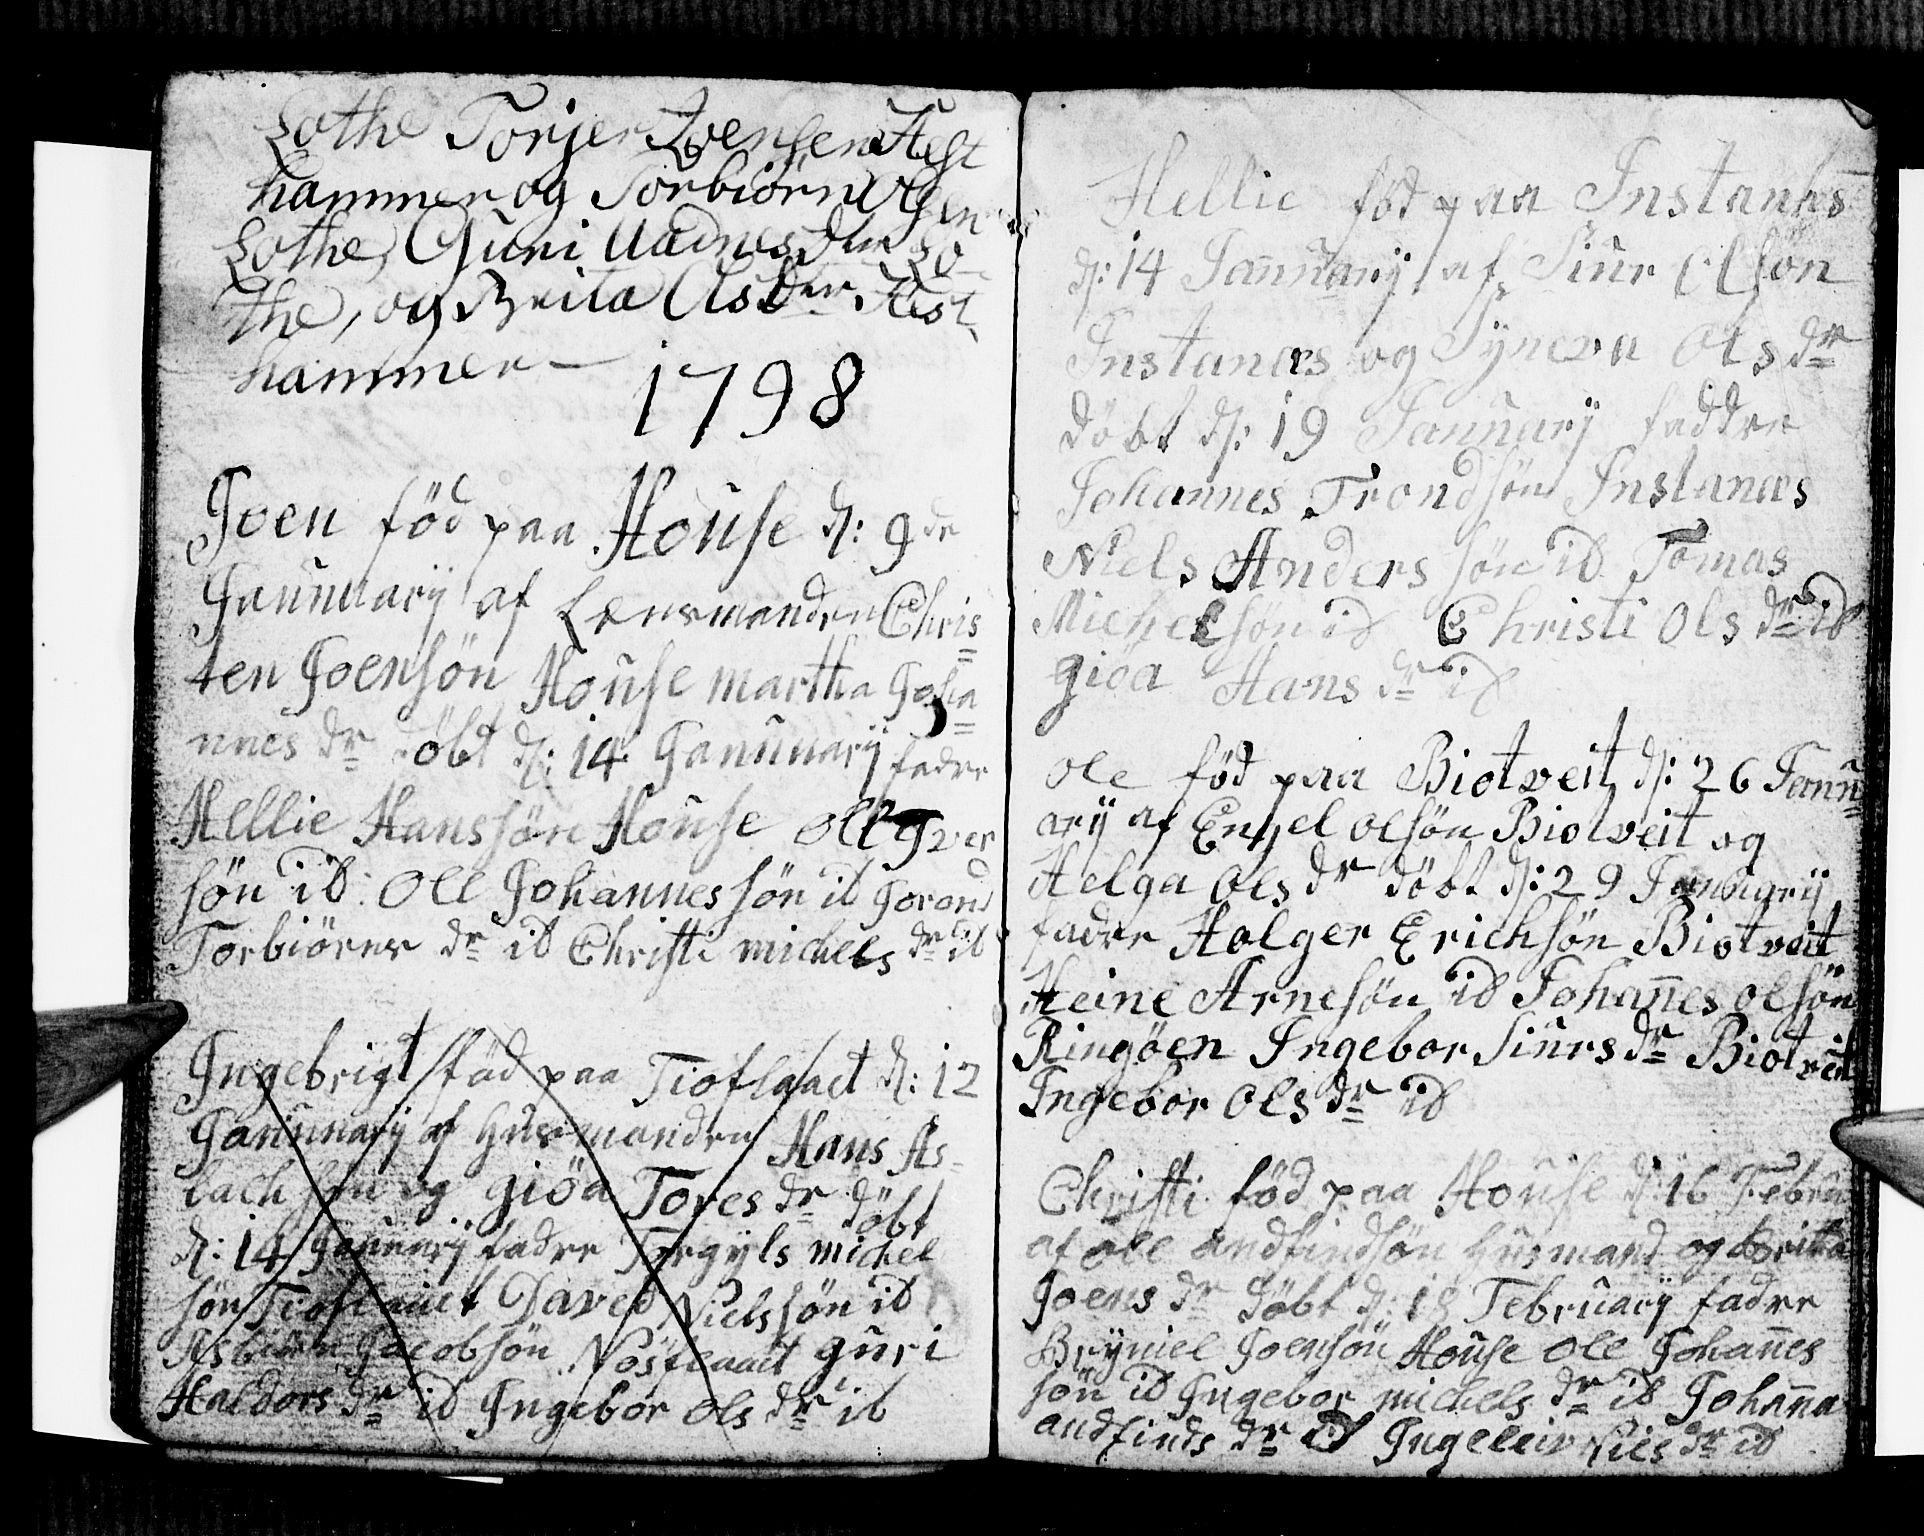 Lothe Torjer Joensen Hest
hammer og Torbiörn Olsen
Lothe, Guri Aadnesdter Lo-
the, og Brita Olsdtr Hest-
hammer —
1798
Joen föd paa Houſe d: 9de
Januuarÿ af Lensmanden Chris
ten Joenſön Houſe martha Joha
nnes dr döbt d: 14 Januuarÿ fadre
Hellie Hansſön Houſe Olle Iver
ſön ib: Ole Johannesſön ib Jorond
Torbiörns dr ib Chriſti michels dr ib
Ingebrigt föd paa Tioflaaet d: 12
Januuarÿ af Husmanden Hans As-
lachſön og giöa Tores dr döbt
d: 14 Januarÿ fadre Torgÿls michel
ſön Tioflaaet Daved Nielsſön ib
Asbiörn Jacobſön Nösflaaet guri
Haldors dr ib Ingebor Ols dr ib
Hellie föd paa Instanæs
d: 14 Januuarÿ af Siur Olſön
Instanæs og Sÿneva Ols dr
döbt d: 19 Januarÿ faddre
Johannes Trondſön Instanæs
Niels Andersſön ib Tomas
Michelſön ib Christi Ols dr ib
giöa Hans dr ib
Ole föd paa Biotveit d: 26 Janu
arÿ af Engel olſön Biotveit og
Helga Ols dr döbt d: 29 Januarÿ
fadre Holger Erichſön Biotveit
Heine Arneſön ib Johañes olſön
Ringöen Ingebor Siurs dr Biotveit
Ingebor Ols dr ib
Chriſti föd paa Houſe d: 16 Febru
af ole andfindſön Husmand og Britha
Joens dr döbt d: 18 Februarÿ fadre
Brÿniel Joenſön Houſe Ole Johañes
ſön ib Ingebor michels dr ib Johana
andfinds dr ib Ingeleiv dr ib